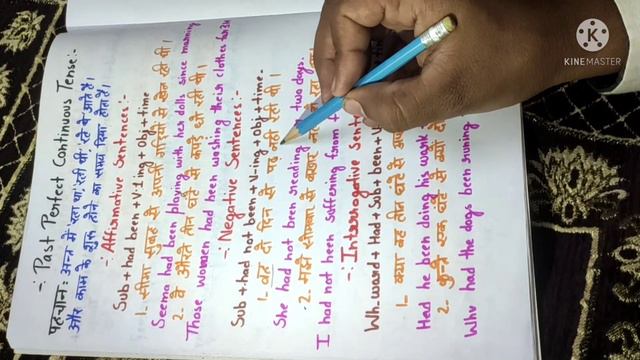 -: Past Perfect Continuous Tense:-
पहचान: अन्त में रहा था, रही थी, रहे थे आते हैं।
और काम के शुरू होने का समय दिया होता है।
-: Affirmative Sentences:-
Sub + had been + V-1 ing + Obj + time
1. सीमा सुबह से अपनी गुड़ियों से खेल रही थी।
Seema had been playing with her dolls since morning
2. वे औरतें तीन घंटे से कपड़े धो रही थी।
Those women had been washing their clothes for 3h
-: Negative Sentences:-
Sub + had not been + V-ing + Obj + time.
1. वह दो दिन से पढ़ नहीं रही थी।
She had not been reading two days.
2. मुझे से बुखार
I had not been suffering from
-: Interrogative Sent
Wh. word + Had + Sub + been +
1. क्या वह तीन घंटे से
Had he been doing his work
2. कुत्ते एक घंटे से क्यों
Why had the dogs been runing
KINEMASTER